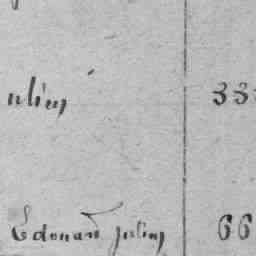 ulien 33
Edouard julien 66